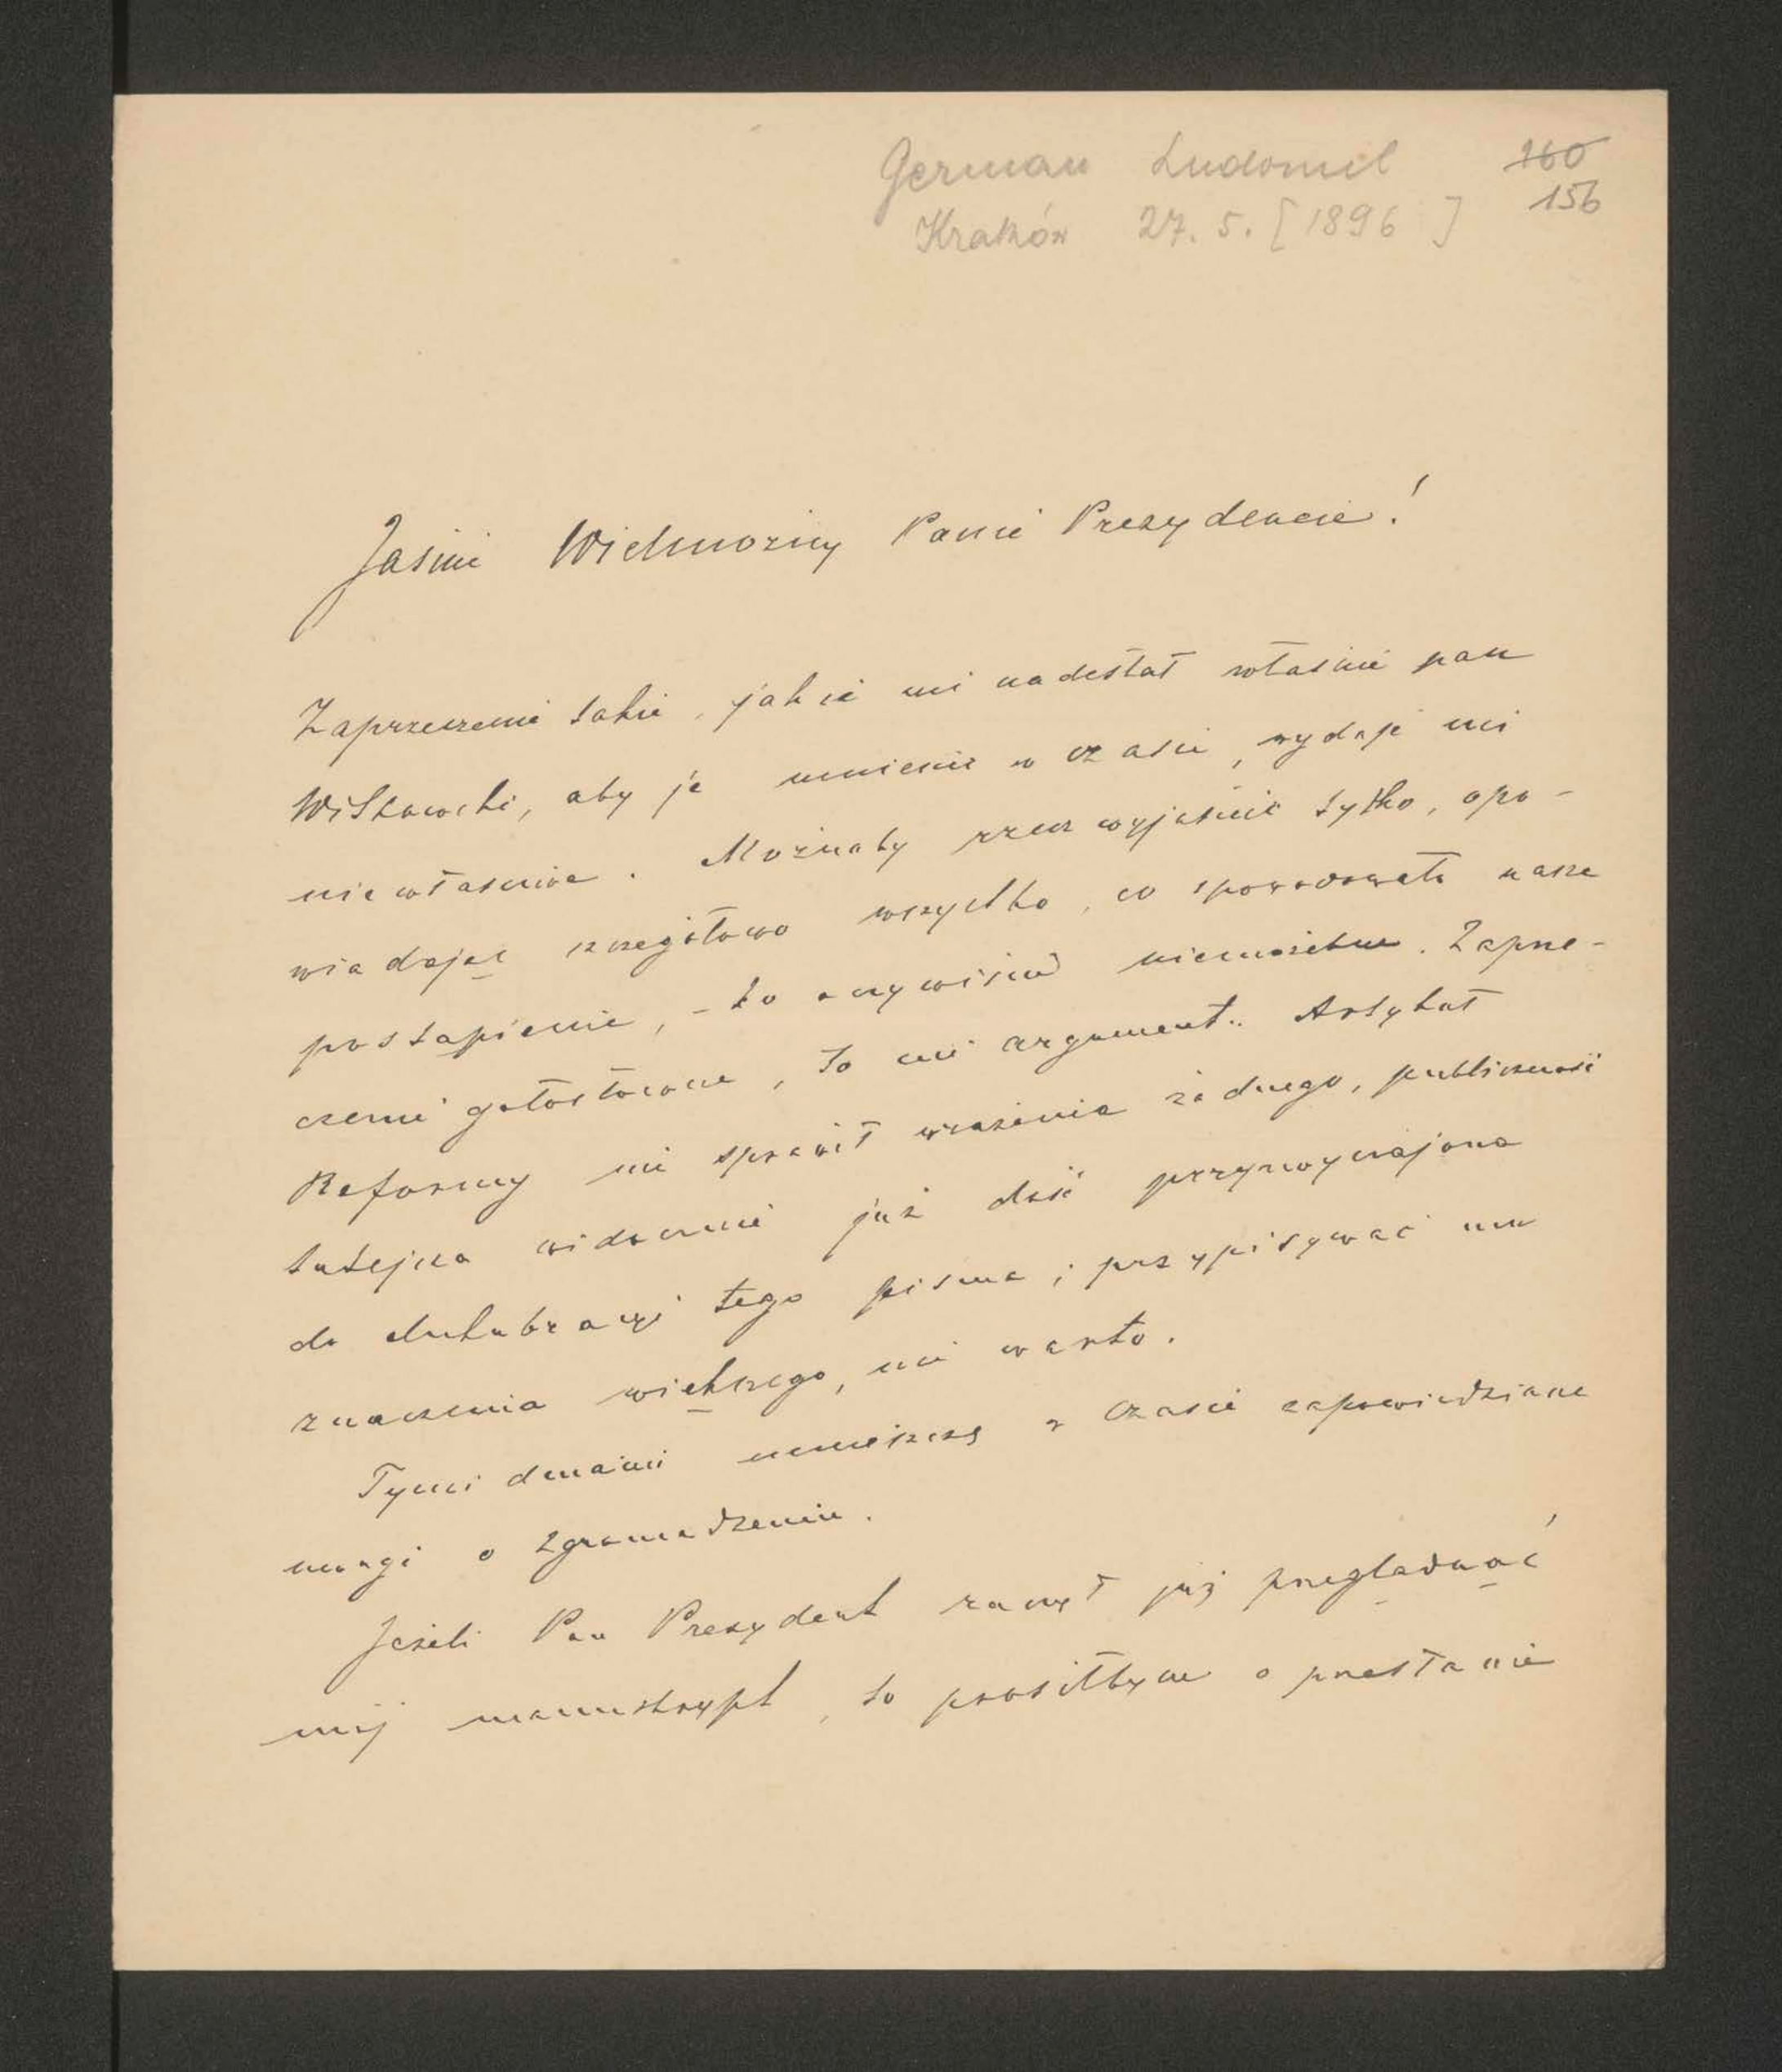 German Ludomil 160
Kraków 27. 5. [1896] 156
Jaśnie Wielmożny Panie Prezydencie!
Zaprzeczenie takie, jakie mi nadesłał właśnie pan
aby je umieścić w Czasie, wydaje mi
niewłaściwe. Możnaby rzecz wyjaśnić tylko, opo-
wiadając szczegółowo wszystko, co spowodowało nasze
postąpienie, - to oczywiście niemożebne. Zaprze-
czenie gołosłowne, to nie argument. Artykuł
Reformy nie sprawił wrażenia żadnego, publiczność
tutejsza widocznie już dość przyzwyczajona
do elukubracyj tego pisma; przypisywać mu
znaczenia większego, nie warto.
Tymi dniami umieszczę w Czasie zapowiedziane
uwagi o Zgromadzeniu.
Jeżeli Pan Prezydent raczył już przeglądnąć
mój manuskrypt, to prosiłbym o przesłanie